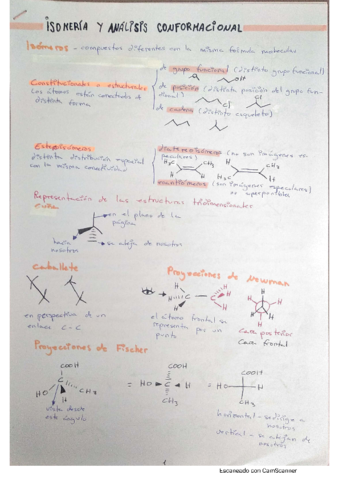 ISOMERÍA Y ANÁLISIS CONFORMACIONAL
Isómeros - compuestos diferentes con la misma fórmula molecular
Constitucionales o estructurales
Los átomos están conectados de
distinta forma
de grupo funcional (distinto grupo funcional)
de posición (distinta posición del grupo fun-
cional)
de cadena (distinto esqueleto)
Estereoisómeros
distinta distribución espacial
con la misma conectividad
diastereoisómeros (no son imágenes es-
peculares)
H3C
CH3
H3C
CH3
H
enantiómeros (son imágenes especulares)
no superponibles
Representación de las estructuras tridimensionales
en el plano de la
página
hacia
nosotros
se aleja de nosotros
Caballete
en perspectiva de un
enlace C-C
Proyecciones de Newman
H
H
H
C
C
H
H
H
el átomo frontal se
representa por un
punto
Cara posterior
Cara frontal
Proyecciones de Fischer
COOH
C
HO
H
CH3
vista desde
este ángulo
=
COOH
HO
C
H
CH3
=
COOH
HO
H
CH3
horizontal - se dirige a
nosotros
vertical - se alejan de
nosotros
1
Escaneado con CamScanner